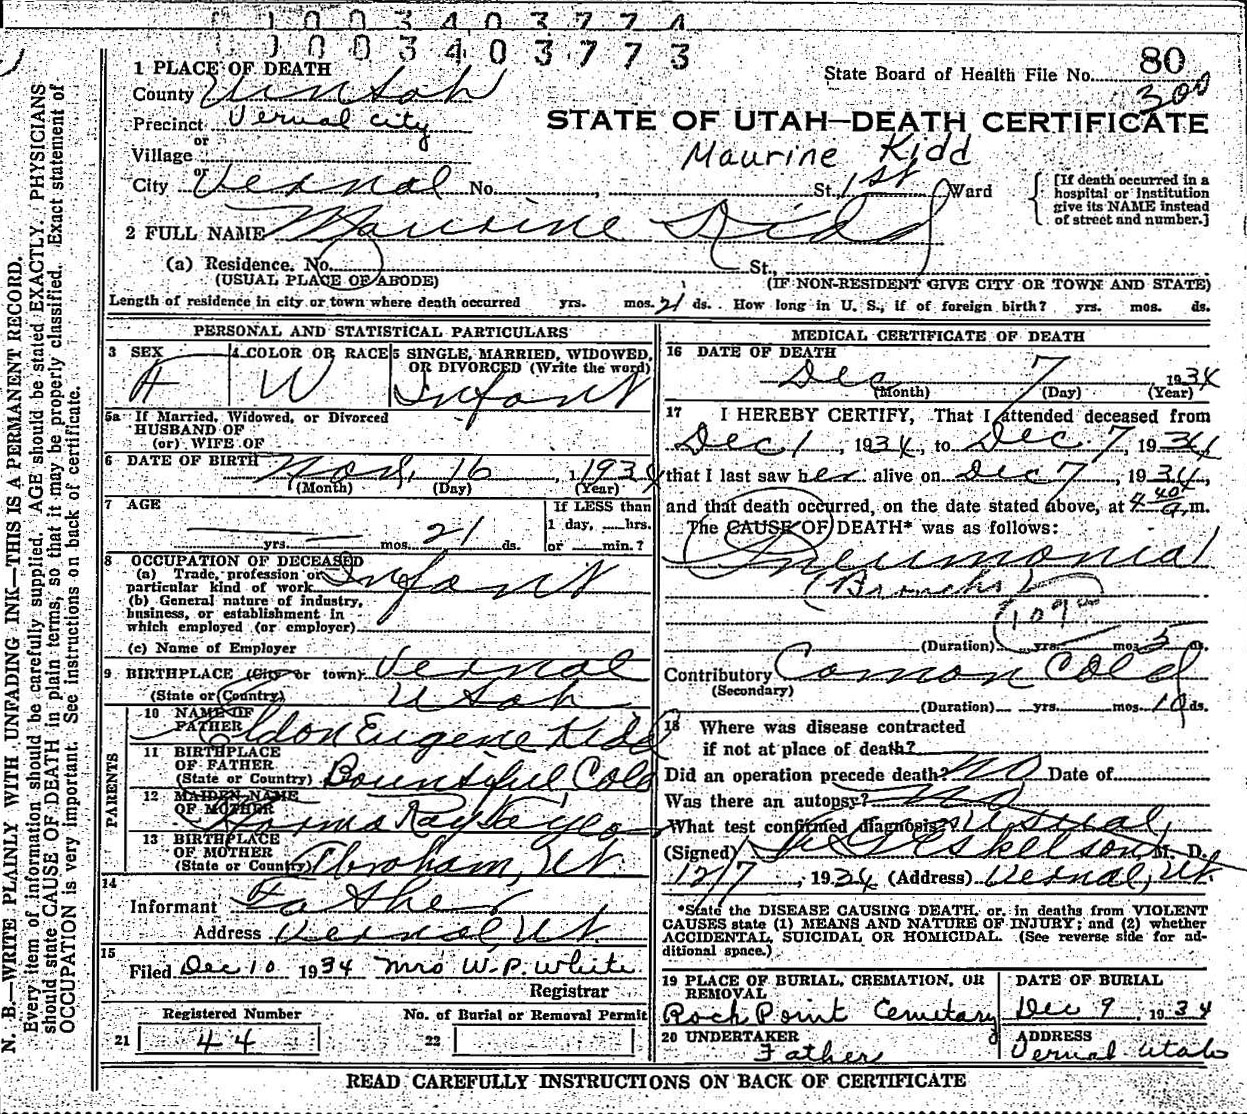 1003403774
1003403773
80
State Board of Health File No.
300
1 PLACE OF DEATH
County Uintah
STATE OF UTAH—DEATH CERTIFICATE
Precinct Vernal city
or
Maurine Kidd
Village
or
City Vernal No. , St., 1st Ward
[If death occurred in a hospital or institution give its NAME instead of street and number.]
2 FULL NAME Maurine Kidd
(a) Residence. No. St.,
(USUAL PLACE OF ABODE) (IF NON-RESIDENT GIVE CITY OR TOWN AND STATE)
Length of residence in city or town where death occurred yrs. mos. 21 ds. How long in U. S., if of foreign birth? yrs. mos. ds.
PERSONAL AND STATISTICAL PARTICULARS
3 SEX 4 COLOR OR RACE 5 SINGLE, MARRIED, WIDOWED,
OR DIVORCED (Write the word)
F W Infant
5a If Married, Widowed, or Divorced
HUSBAND OF
(or) WIFE OF
6 DATE OF BIRTH Nov. 16, 1934
(Month) (Day) (Year)
7 AGE If LESS than
1 day, hrs.
yrs. mos. 21 ds. or min.?
8 OCCUPATION OF DECEASED
(a) Trade, profession or
particular kind of work Infant
(b) General nature of industry,
business, or establishment in
which employed (or employer)
(c) Name of Employer
9 BIRTHPLACE (City or town) Vernal
(State or Country) Utah
PARENTS
10 NAME OF
FATHER Eldon Eugene Kidd
11 BIRTHPLACE
OF FATHER
(State or Country) Bountiful Colo
12 MAIDEN NAME
OF MOTHER Norma Ray Taylor
13 BIRTHPLACE
OF MOTHER
(State or Country) Abraham, Ut
14
Informant Father
Address Vernal, Ut
15
Filed Dec 10 1934 Mrs W. P. White
Registrar
Registered Number No. of Burial or Removal Permit
21 44 22
MEDICAL CERTIFICATE OF DEATH
16 DATE OF DEATH
Dec 7 1934
(Month) (Day) (Year)
17 I HEREBY CERTIFY, That I attended deceased from
Dec 1, 1934, to Dec 7, 1934
that I last saw her alive on Dec 7, 1934,
and that death occurred, on the date stated above, at 4 40 a.m.
The CAUSE OF DEATH* was as follows:
Pneumonia
(Bronchol
107a
(Duration) yrs. mos. 5 ds.
Contributory Comon Cold
(Secondary)
(Duration) yrs. mos. 10 ds.
18 Where was disease contracted
if not at place of death?
Did an operation precede death? No Date of
Was there an autopsy? No
What test confirmed diagnosis? Usual,
(Signed) Eskelson, M. D.
12/7, 1934 (Address) Vernal, Ut
*State the DISEASE CAUSING DEATH, or, in deaths from VIOLENT
CAUSES state (1) MEANS AND NATURE OF INJURY; and (2) whether
ACCIDENTAL, SUICIDAL OR HOMICIDAL. (See reverse side for ad-
ditional space.)
19 PLACE OF BURIAL, CREMATION, OR DATE OF BURIAL
REMOVAL
Rock Point Cemetary Dec 9, 1934
20 UNDERTAKER ADDRESS
Father Vernal Utah
READ CAREFULLY INSTRUCTIONS ON BACK OF CERTIFICATE
N. B.—WRITE PLAINLY WITH UNFADING INK—THIS IS A PERMANENT RECORD.
Every item of information should be carefully supplied. AGE should be stated EXACTLY. PHYSICIANS
should state CAUSE OF DEATH in plain terms, so that it may be properly classified. Exact statement of
OCCUPATION is very important. See instructions on back of certificate.